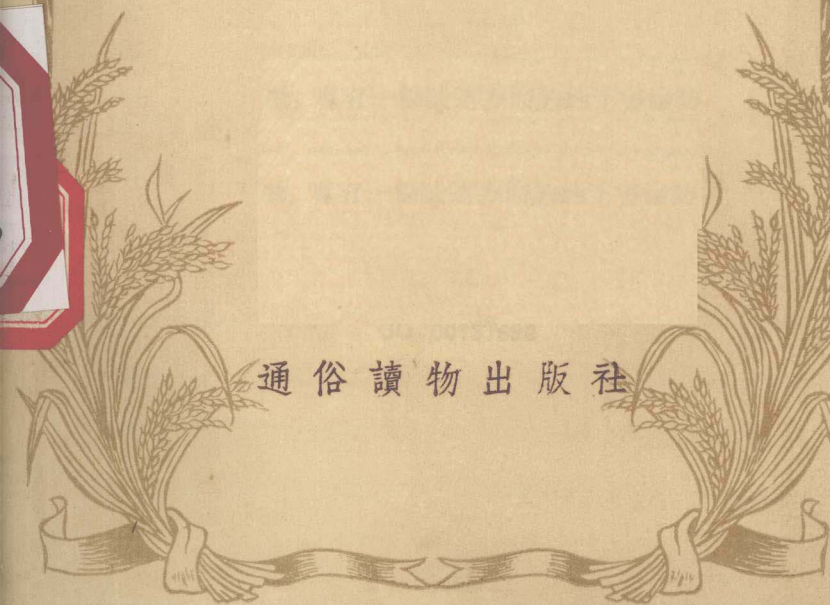 通俗讀物出版社